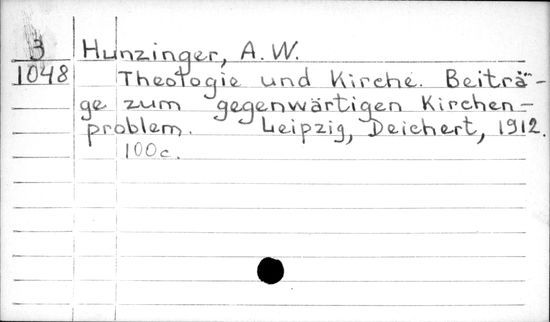 3 Hunzinger, A. W.
1048 Theologie und Kirche. Beiträ-
ge zum gegenwärtigen Kirchen-
problem. Leipzig, Deichert, 1912.
100c.